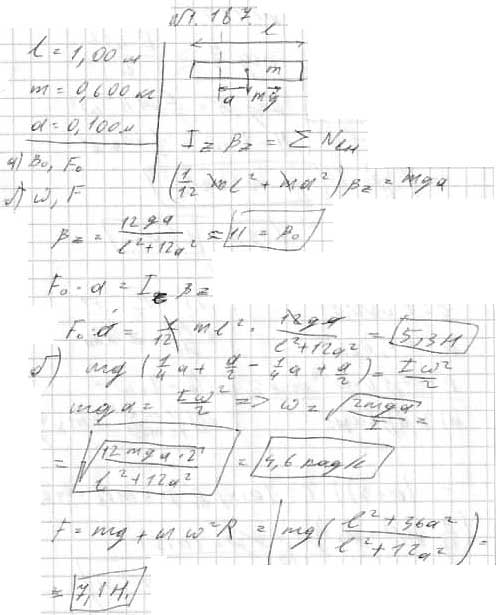 №1.187.
l = 1,00 м
m = 0,600 кг
a = 0,100 м
l
m
a
mg
а) β₀, F₀
б) ω, F
I_z β_z = Σ N_вн
(1/12 ml² + ma²) β_z = mga
β_z = 12ga / (l² + 12a²) = 11 = β₀
F₀ · a = I_z β_z
F₀ · a = 1/12 ml² · 12ga / (l² + 12a²) = 5,3 Н
б) mg (1/4 a + a/2 - 1/4 a + a/2) = Iω²/2
mga = Iω²/2 => ω = √(2mga / I) =
= √(12mga · 2 / (l² + 12a²)) = 4,6 рад/с
F = mg + mω²R = mg (l² + 36a² / l² + 12a²) =
= 7,1 Н.